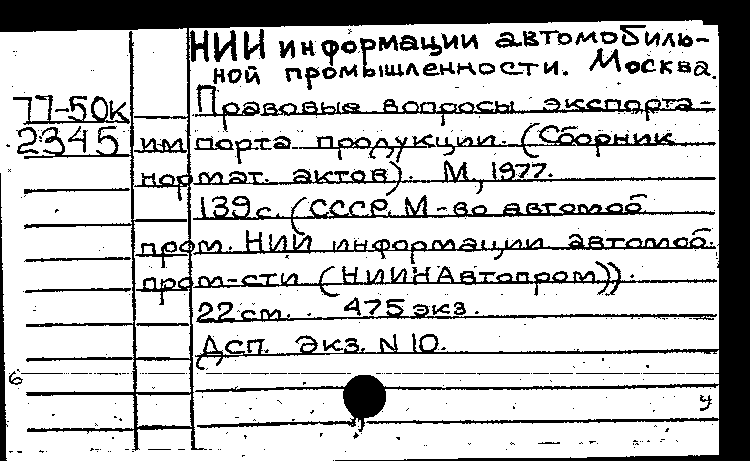 НИИ информации автомобиль-
ной промышленности. Москва.
77-50к
2345
Правовые вопросы экспорта-
импорта продукции. (Сборник
нормат. актов). М., 1977.
139 с. (СССР. М-во автомоб.
пром. НИИ информации автомоб.
пром-сти (НИИНАвтопром)).
22 см. 475 экз.
Дсп. Экз. N 10.
б
у